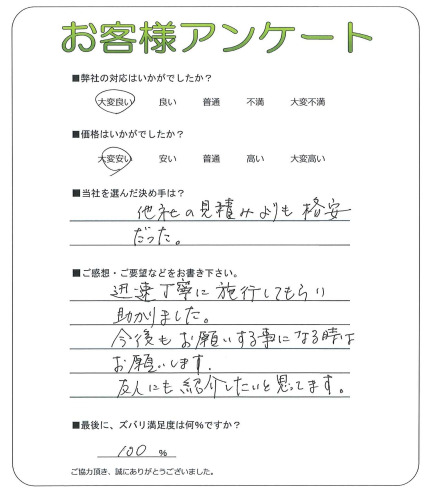 お客様アンケート
■弊社の対応はいかがでしたか？
大変良い 良い 普通 不満 大変不満
■価格はいかがでしたか？
大変安い 安い 普通 高い 大変高い
■当社を選んだ決め手は？
他社の見積みよりも格安
だった。
■ご感想・ご要望などをお書き下さい。
迅速丁寧に施行してもらい
助かりました。
今後もお願いする事になる時は
お願いします.
友人にも紹介したいと思ってます。
■最後に、ズバリ満足度は何％ですか？
100 ％
ご協力頂き、誠にありがとうございました。